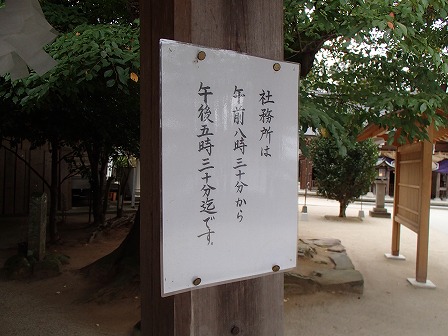 社務所は
午前八時三十分から
午後五時三十分迄です。